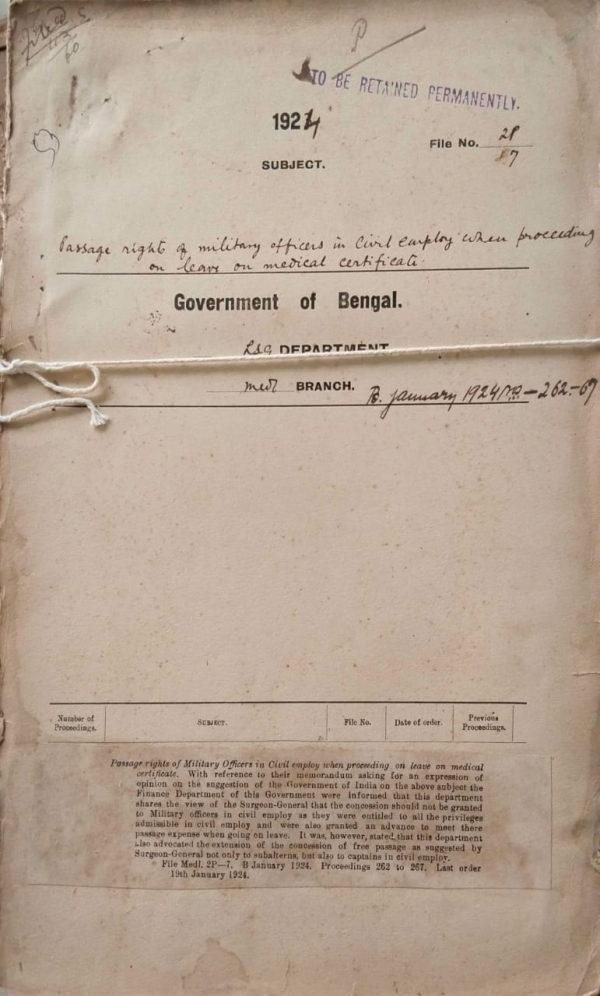 Filed
P
TO BE RETAINED PERMANENTLY.
1924
File No. 2P
7
SUBJECT.
Passage rights of military officers in Civil employ when proceeding
on leave on medical certificate.
Government of Bengal.
LSG DEPARTMENT
Medl BRANCH.
B. January 1924 — 262-67
Number of Proceedings.
SUBJECT.
File No.
Date of order.
Previous Proceedings.
Passage rights of Military Officers in Civil employ when proceeding on leave on medical
certificate. With reference to their memorandum asking for an expression of
opinion on the suggestion of the Government of India on the above subject the
Finance Department of this Government were informed that this department
shares the view of the Surgeon-General that the concession should not be granted
to Military officers in civil employ as they were entitled to all the privileges
admissible in civil employ and were also granted an advance to meet there
passage expense when going on leave. It was, however, stated that this department
also advocated the extension of the concession of free passage as suggested by
Surgeon-General not only to subalterns, but also to captains in civil employ.
File Medl. 2P—7. B January 1924. Proceedings 262 to 267. Last order
19th January 1924.